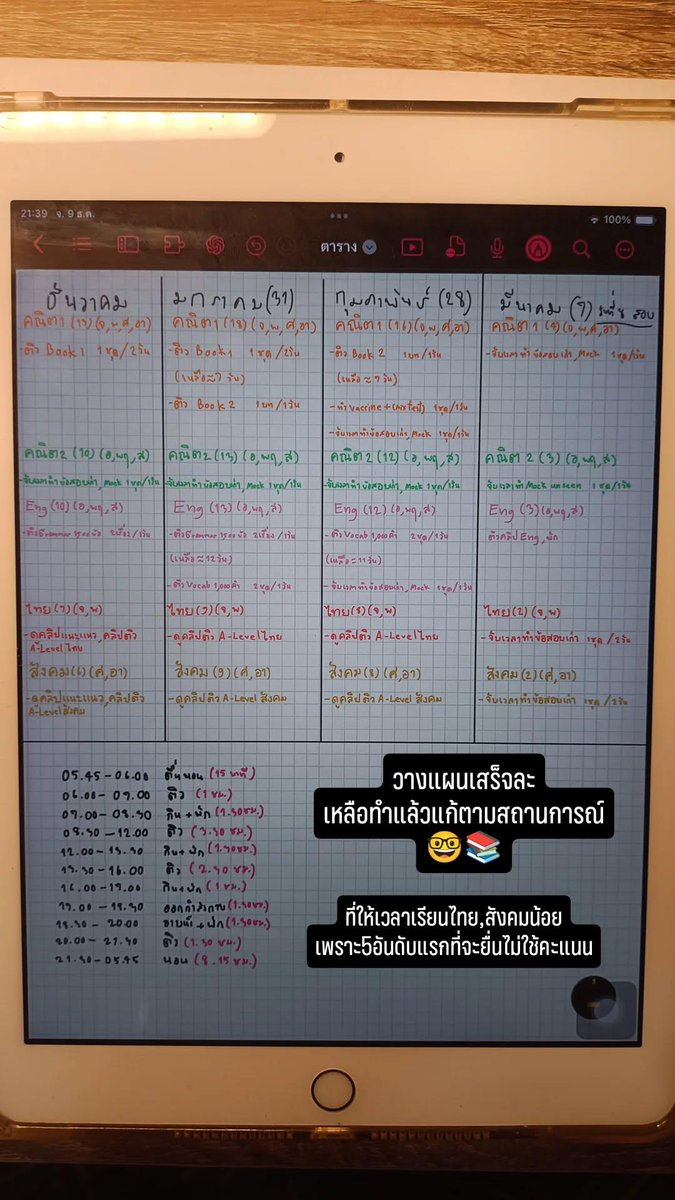 21:39 จ. 9 ธ.ค.
100%
ตาราง
ธันวาคม
คณิต1 (13) (จ,พ,ศ,อา)
- ติว Book 1 1 ชุด / 2 วัน
คณิต2 (10) (อ,พฤ,ส)
- จับเวลาทำข้อสอบเก่า, Mock 1 ชุด / 1 วัน
Eng (10) (อ,พฤ,ส)
- ติว Grammar 1500 ข้อ 2 เรื่อง / 1 วัน
ไทย (7) (จ,พ)
- ดูคลิปแนะแนว, คลิปติว
A-Level ไทย
สังคม (6) (ศ,อา)
- ดูคลิปแนะแนว, คลิปติว
A-Level สังคม
มกราคม (31)
คณิต1 (18) (จ,พ,ศ,อา)
- ติว Book 1 1 ชุด / 2 วัน
(เหลือ ≈ 7 วัน)
- ติว Book 2 1 บท / 1 วัน
คณิต2 (13) (อ,พฤ,ส)
- จับเวลาทำข้อสอบเก่า, Mock 1 ชุด / 1 วัน
Eng (13) (อ,พฤ,ส)
- ติว Grammar 1500 ข้อ 2 เรื่อง / 1 วัน
(เหลือ ≈ 12 วัน)
- ติว Vocab 1,000 คำ 2 ชุด / 1 วัน
ไทย (9) (จ,พ)
- ดูคลิปติว A-Level ไทย
สังคม (9) (ศ,อา)
- ดูคลิปติว A-Level สังคม
กุมภาพันธ์ (28)
คณิต1 (16) (จ,พ,ศ,อา)
- ติว Book 2 1 บท / 1 วัน
(เหลือ ≈ 7 วัน)
- ทำ Vaccine + 1 ชุด / 1 วัน
- จับเวลาทำข้อสอบเก่า, Mock 1 ชุด / 1 วัน
คณิต2 (12) (อ,พฤ,ส)
- จับเวลาทำข้อสอบเก่า, Mock 1 ชุด / 1 วัน
Eng (12) (อ,พฤ,ส)
- ติว Vocab 1,000 คำ 2 ชุด / 1 วัน
(เหลือ ≈ 11 วัน)
- จับเวลาทำข้อสอบเก่า, Mock 1 ชุด / 1 วัน
ไทย (8) (จ,พ)
- ดูคลิปติว A-Level ไทย
สังคม (8) (ศ,อา)
- ดูคลิปติว A-Level สังคม
มีนาคม (7) สอบ
คณิต1 (4) (จ,พ,ศ,อา)
- จับเวลาทำข้อสอบเก่า, Mock 1 ชุด / 1 วัน
คณิต 2 (3) (อ,พฤ,ส)
จับเวลาทำ Mock unseen 1 ชุด / 1 วัน
Eng (3) (อ,พฤ,ส)
ติวคลิป Eng, พัก
ไทย (2) (จ,พ)
- จับเวลาทำข้อสอบเก่า 1 ชุด / 2 วัน
สังคม (2) (ศ,อา)
- จับเวลาทำข้อสอบเก่า 1 ชุด / 2 วัน
05.45-06.00 ตื่นนอน (15 นาที)
06.00-07.00 ติว (1 ชม.)
07.00-08.30 กิน+พัก (1.30 ชม.)
08.30-12.00 ติว (3.30 ชม.)
12.00-13.30 กิน+พัก (1.30 ชม.)
13.30-16.00 ติว (2.30 ชม.)
16.00-17.00 กิน+พัก (1 ชม.)
17.00-18.30 ออกกำลังกาย (1.30 ชม.)
18.30-20.00 อาบน้ำ+พัก (1.30 ชม.)
20.00-21.30 ติว (1.30 ชม.)
21.30-05.45 นอน (8.15 ชม.)
วางแผนเสร็จละ
เหลือทำแล้วแก้ตามสถานการณ์
🤓📚
ที่ให้เวลาเรียนไทย,สังคมน้อย
เพราะ5อันดับแรกที่จะยื่นไม่ใช้คะแนน